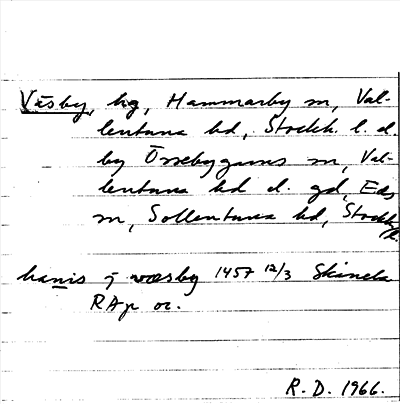 Väsby, hg, Hammarby sn, Val-
lentuna hd, Stockh. l. el.
by Össebygarns sn, Val-
lentuna hd el. gd, Eds
sn, Sollentuna hd, Stockh. l.
hanis j wæsby 1457 12/3 Skånela
RAp or.
R. D. 1966.